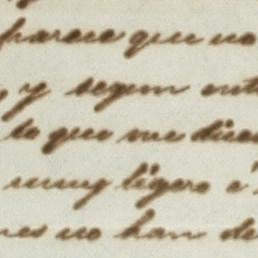 parece que no
, y segun ent
lo que me dicen
muy ligero é
nes no han de